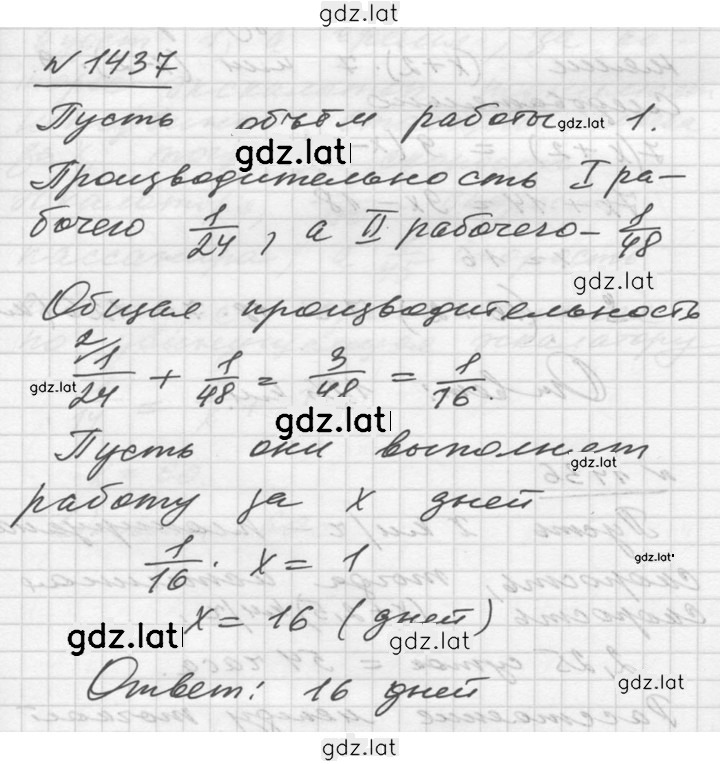 gdz.lat
№ 1437
Пусть объём работы gdz.lat 1.
gdz.lat
Производительность I ра-
бочего 1/24, а II рабочего - 1/48
gdz.lat
Общая производительность
gdz.lat 2/ 1/24 + 1/48 = 3/48 = 1/16.
gdz.lat
Пусть они выполнят
gdz.lat
работу за x дней
1/16 · x = 1
gdz.lat
x = 16 (дней)
gdz.lat gdz.lat
Ответ: 16 дней
gdz.lat
gdz.lat